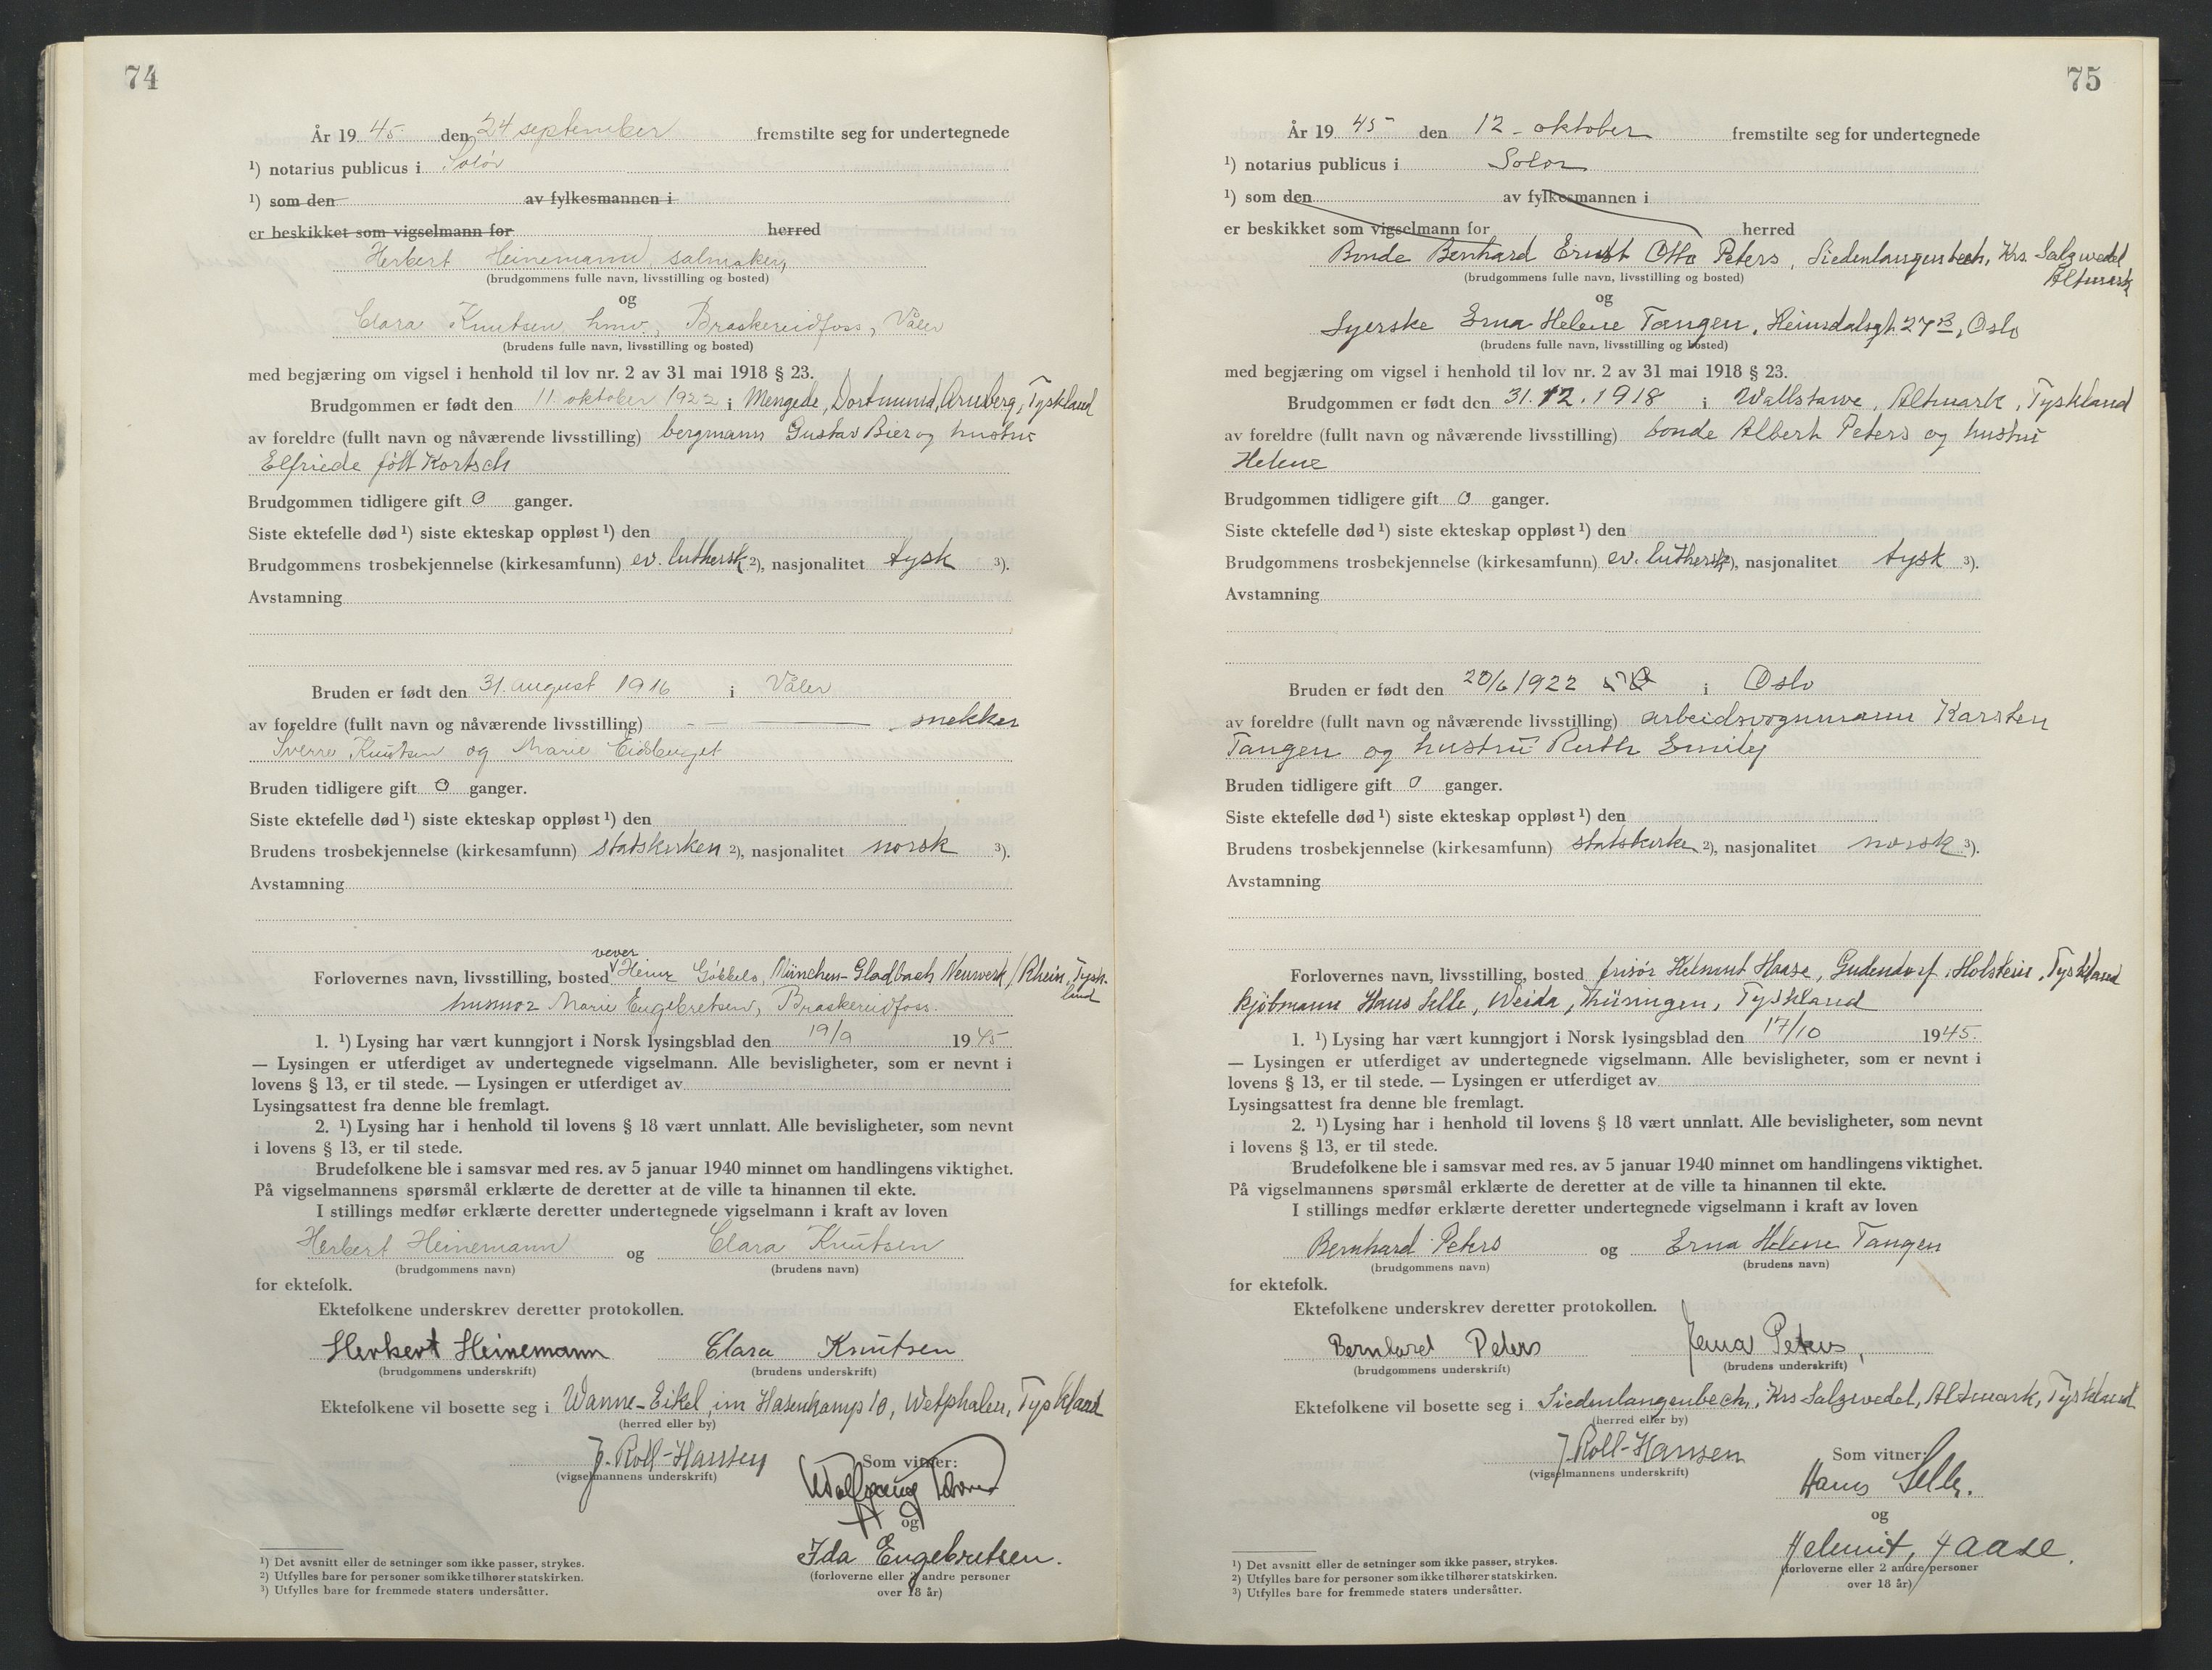 74
År 19 45 den 24 september fremstilte seg for undertegnede
¹) notarius publicus i Solør
¹) som den av fylkesmannen i
er beskikket som vigselmann for herred
Herbert Heinemann, salmaker,
(brudgommens fulle navn, livsstilling og bosted)
og
Clara Knutsen, hmv., Braskereidfoss, Våler
(brudens fulle navn, livsstilling og bosted)
med begjæring om vigsel i henhold til lov nr. 2 av 31 mai 1918 § 23.
Brudgommen er født den 11. oktober 1922 i Mengede, Dortmund, Arnberg, Tyskland
av foreldre (fullt navn og nåværende livsstilling) bergmann Gustav Bier og hustru
Elfriede født Kortsch
Brudgommen tidligere gift 0 ganger.
Siste ektefelle død ¹) siste ekteskap oppløst ¹) den
Brudgommens trosbekjennelse (kirkesamfunn) ev. luthersk ²), nasjonalitet tysk ³).
Avstamning
Bruden er født den 31. august 1916 i Våler
av foreldre (fullt navn og nåværende livsstilling) snekker
Sverre Knutsen og Marie Eidsberget
Bruden tidligere gift 0 ganger.
Siste ektefelle død ¹) siste ekteskap oppløst ¹) den
Brudens trosbekjennelse (kirkesamfunn) statskirken ²), nasjonalitet norsk ³).
Avstamning
vever
Forlovernes navn, livsstilling, bosted Heinz Gökkels, München-Gladbach Neuwerk / Rhein, Tysk-
land
husmor Marie Engebretsen, Braskereidfoss.
1. ¹) Lysing har vært kunngjort i Norsk lysingsblad den 19/9 1945
— Lysingen er utferdiget av undertegnede vigselmann. Alle bevisligheter, som er nevnt i
lovens § 13, er til stede. — Lysingen er utferdiget av
Lysingsattest fra denne ble fremlagt.
2. ¹) Lysing har i henhold til lovens § 18 vært unnlatt. Alle bevisligheter, som nevnt
i lovens § 13, er til stede.
Brudefolkene ble i samsvar med res. av 5 januar 1940 minnet om handlingens viktighet.
På vigselmannens spørsmål erklærte de deretter at de ville ta hinannen til ekte.
I stillings medfør erklærte deretter undertegnede vigselmann i kraft av loven
Herbert Heinemann og Clara Knutsen
(brudgommens navn) (brudens navn)
for ektefolk.
Ektefolkene underskrev deretter protokollen.
Herbert Heinemann Clara Knutsen
(brudgommens underskrift) (brudens underskrift)
Ektefolkene vil bosette seg i Wanne-Eikel, im Hasenkamp 10, Wetphalen, Tyskland
(herred eller by)
J. Roll-Hansen Som vitner:
(vigselmannens underskrift) Wolfgang
og
Ida Engebretsen.
(forloverne eller 2 andre personer
over 18 år)
¹) Det avsnitt eller de setninger som ikke passer, strykes.
²) Utfylles bare for personer som ikke tilhører statskirken.
³) Utfylles bare for fremmede staters undersåtter.
75
År 19 45 den 12 - oktober fremstilte seg for undertegnede
¹) notarius publicus i Solør
¹) som den av fylkesmannen i
er beskikket som vigselmann for herred
Bonde Bernhard Ernst Otto Peters, Siedenlangenbech, Krs. Salzwedel
Altmark
(brudgommens fulle navn, livsstilling og bosted)
og
Syerske Erna Helene Tangen, Heimdalsgt. 27B, Oslo
(brudens fulle navn, livsstilling og bosted)
med begjæring om vigsel i henhold til lov nr. 2 av 31 mai 1918 § 23.
Brudgommen er født den 31.12.1918 i Wallstawe, Altmark, Tyskland
av foreldre (fullt navn og nåværende livsstilling) bonde Albert Peters og hustru
Helene
Brudgommen tidligere gift 0 ganger.
Siste ektefelle død ¹) siste ekteskap oppløst ¹) den
Brudgommens trosbekjennelse (kirkesamfunn) ev. luthersk ²), nasjonalitet tysk ³).
Avstamning
Bruden er født den 20/6 1922 i Oslo
av foreldre (fullt navn og nåværende livsstilling) arbeidsvognmann Karsten
Tangen og hustru Ruth Emily
Bruden tidligere gift 0 ganger.
Siste ektefelle død ¹) siste ekteskap oppløst ¹) den
Brudens trosbekjennelse (kirkesamfunn) statskirke ²), nasjonalitet norsk ³).
Avstamning
Forlovernes navn, livsstilling, bosted frisør Helmut Haase, Gudendorf, Holstein, Tyskland
kjøbmann Hans Selle, Weida, Thüringen, Tyskland
1. ¹) Lysing har vært kunngjort i Norsk lysingsblad den 17/10 1945.
— Lysingen er utferdiget av undertegnede vigselmann. Alle bevisligheter, som er nevnt i
lovens § 13, er til stede. — Lysingen er utferdiget av
Lysingsattest fra denne ble fremlagt.
2. ¹) Lysing har i henhold til lovens § 18 vært unnlatt. Alle bevisligheter, som nevnt
i lovens § 13, er til stede.
Brudefolkene ble i samsvar med res. av 5 januar 1940 minnet om handlingens viktighet.
På vigselmannens spørsmål erklærte de deretter at de ville ta hinannen til ekte.
I stillings medfør erklærte deretter undertegnede vigselmann i kraft av loven
Bernhard Peters og Erna Helene Tangen
(brudgommens navn) (brudens navn)
for ektefolk.
Ektefolkene underskrev deretter protokollen.
Bernhard Peters Erna Peters,
(brudgommens underskrift) (brudens underskrift)
Ektefolkene vil bosette seg i Siedenlangenbech, Krs Salzwedel, Altmark, Tyskland
(herred eller by)
J. Roll-Hansen Som vitner:
(vigselmannens underskrift) Hans Selle.
og
Helmut, Haase.
(forloverne eller 2 andre personer
over 18 år)
¹) Det avsnitt eller de setninger som ikke passer, strykes.
²) Utfylles bare for personer som ikke tilhører statskirken.
³) Utfylles bare for fremmede staters undersåtter.